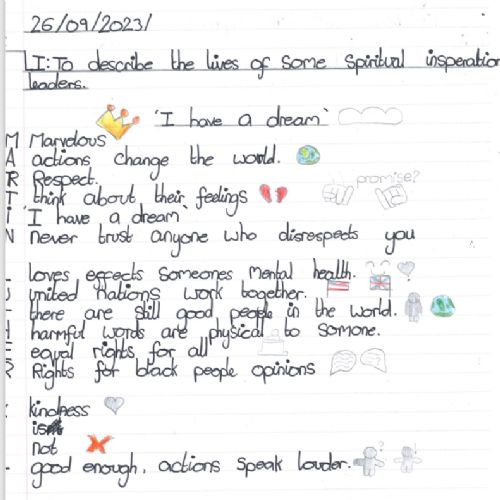 26/09/2023/
LI: To describe the lives of some Spiritual insperation
leaders.
'I have a dream'
M Marvelous
A actions change the world.
R Respect.
T think about their feelings
promise?
I 'I have a dream'
N never trust anyone who disrespects you
L loves effects someones mental health.
U united nations work together.
T there are still good people in the world.
H harmful words are physical to somone.
E equal rights for all
R Rights for black people opinions
K kindness
not
good enough, actions speak louder.